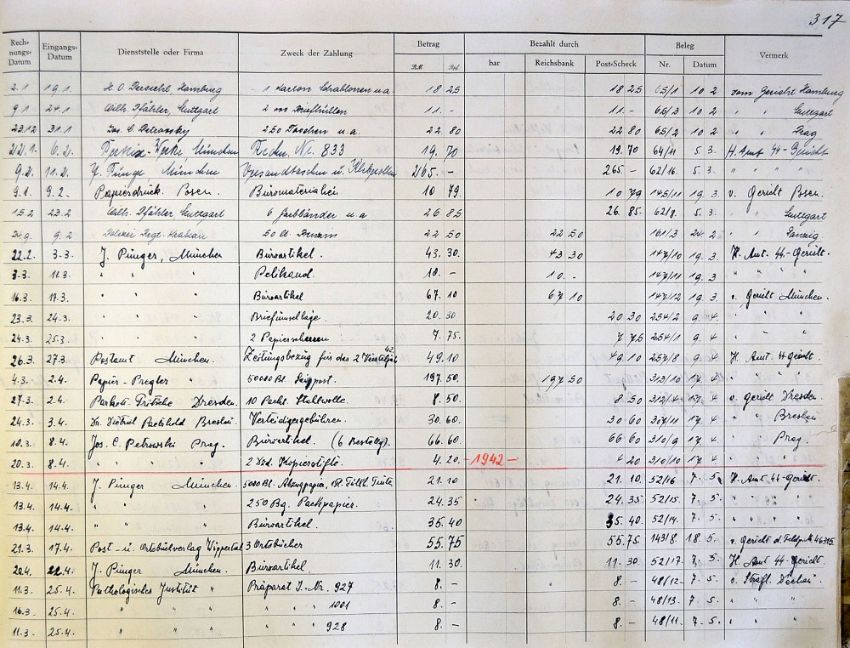 317
Rech- nungs- Datum Eingangs- Datum Dienststelle oder Firma Zweck der Zahlung Betrag Bezahlt durch Beleg Vermerk
RM Rpf. bar Reichsbank Post-Scheck Nr. Datum
2.1 19.1. Hamburg 1 Karton Schablonen u.a. 18 25 18 25 65/1 10 2 vom Gericht Hamburg
9.1 24.1 Wilh. Pfähler, Stuttgart 2 Briefhüllen 11. - 11. - 65/3 10 2 " " Stuttgart
23.12 31.1 250 Taschen u.a. 22. 80 22 80 65/2 10 2 " " Prag
22.1. 6.2. München Rechn. Nr. 833 19. 70 19. 70 64/11 5. 3 H. Amt SS-Gericht
9.2. 11.2. München 265. - 265 - 62/16 5. 3 " " "
9.1. 9.2. Papierdruck. Posen. Büromaterialien 10 79 10 79 145/11 19. 3 v. Gericht Posen.
15.2 23.2 Wilh. Pfähler Stuttgart 6 Farbbänder u a 26 85 26. 85 62/8 5. 3 " " Stuttgart
9.2 22 50 22 50 161/3 24. 2 " " Danzig
22.2. 3.3. J. Pinger, München Büroartikel. 43. 30. 43 30 147/10 19. 3 H. Amt. SS-Gericht.
3.3. 11.3. " " " 10. - 10. - 147/11 19. 3 " " "
16.3. 17.3. " " " Büroartikel 67. 10 67 10 147/12 19. 3 v. Gericht München.
23.3. 24.3. " " " Briefumschläge. 20. 30 20 30 254/2 9. 4 " " "
24.3. 25.3. " " " 2 Papierscheren 7. 75. 7 75 254/1 9. 4 " " "
26.3. 27.3. Postamt München. Zeitungsbezug für das 2. Vierteljahr 42 49. 10 49 10 257/8 9. 4 H. Amt SS Gericht.
4.3. 2.4. Papier-Pregler " 50000 Bl. 197. 50. 197 50 313/10 17. 4 " " "
27.3. 2.4. Dresden. 10 Stahlwolle. 8. 50. 8 50 312/4 17. 4 v. Gericht Dresden
24.3. 3.4. Breslau. Verteidigergebühren. 30. 60. 30 60 17. 4 " " Breslau
10.3. 8.4. Jos. C. Petrowski Prag. Büroartikel. 66. 60. 66 60 310/9 17. 4 " " Prag.
20.3. 8.4. " " " Kopierstifte. 4. 20. - 1942 - 4 20 310/10 17. 4 " " "
13.4. 14.4. J. Pinger München. 5000 Bl. Abzugpapier, 1 Fl. Tinte 21. 10 21. 10 52/16 7. 5. H. Amt SS-Gericht.
13.4. 14.4. " " " 250 Bg. Packpapier. 24. 35 24. 35 52/15. 7. 5. " " "
13.4. 14.4. " " " Büroartikel. 35. 40 35. 40. 52/14. 7. 5. " " "
21.3. 17.4. Post- u. Ortsbuchverlag Wuppertal 3 Ortsbücher 55. 75 55. 75 143/8 18. 5. v. Gericht d. Feldp. Nr.
20.4. 22.4. J. Pinger München. Büroartikel 11. 30. 11. 30 52/17. 7. 5. H. Amt SS-Gericht.
11.3. 25.4. Pathologisches Institut " Präparat S. Nr. 927 8. - 8. - 48/12 7. 5. v. Strafl. Dachau.
16.3. 25.4. " " " " " 1001 8. - 8. - 48/13 7. 5. " " "
11.3. 25.4. " " " " " 928 8. - 8. - 48/11 7. 5. " " "